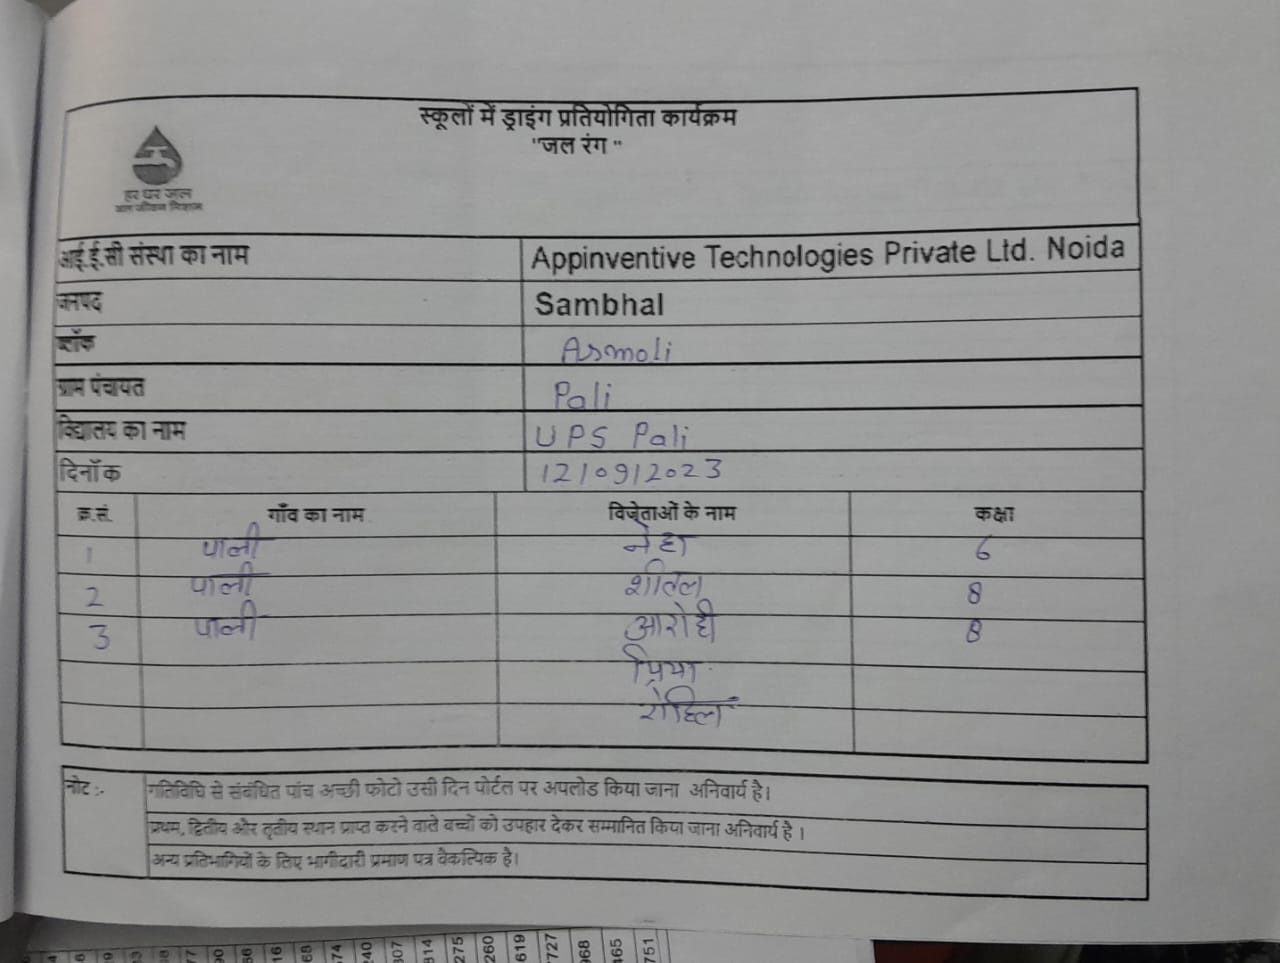 स्कूलों में ड्राइंग प्रतियोगिता कार्यक्रम
"जल रंग"
हर घर जल
जल जीवन मिशन
आई.ई.सी संस्था का नाम Appinventive Technologies Private Ltd. Noida
जनपद Sambhal
ब्लॉक Asmoli
ग्राम पंचायत Pali
विद्यालय का नाम UPS Pali
दिनॉक 12/09/2023
क्र.सं. गाँव का नाम विजेताओं के नाम कक्षा
1 पाली नेहा 6
2 पाली शीतल 8
3 पाली आरोही 8
प्रिया
रोहित
नोट :- गतिविधि से संबंधित पांच अच्छी फोटो उसी दिन पोर्टल पर अपलोड किया जाना अनिवार्य है।
प्रथम, द्वितीय और तृतीय स्थान प्राप्त करने वाले बच्चों को उपहार देकर सम्मानित किया जाना अनिवार्य है ।
अन्य प्रतिभागियों के लिए भागीदारी प्रमाण पत्र वैकल्पिक है।
240
307
314
275
260
619
727
968
465
751